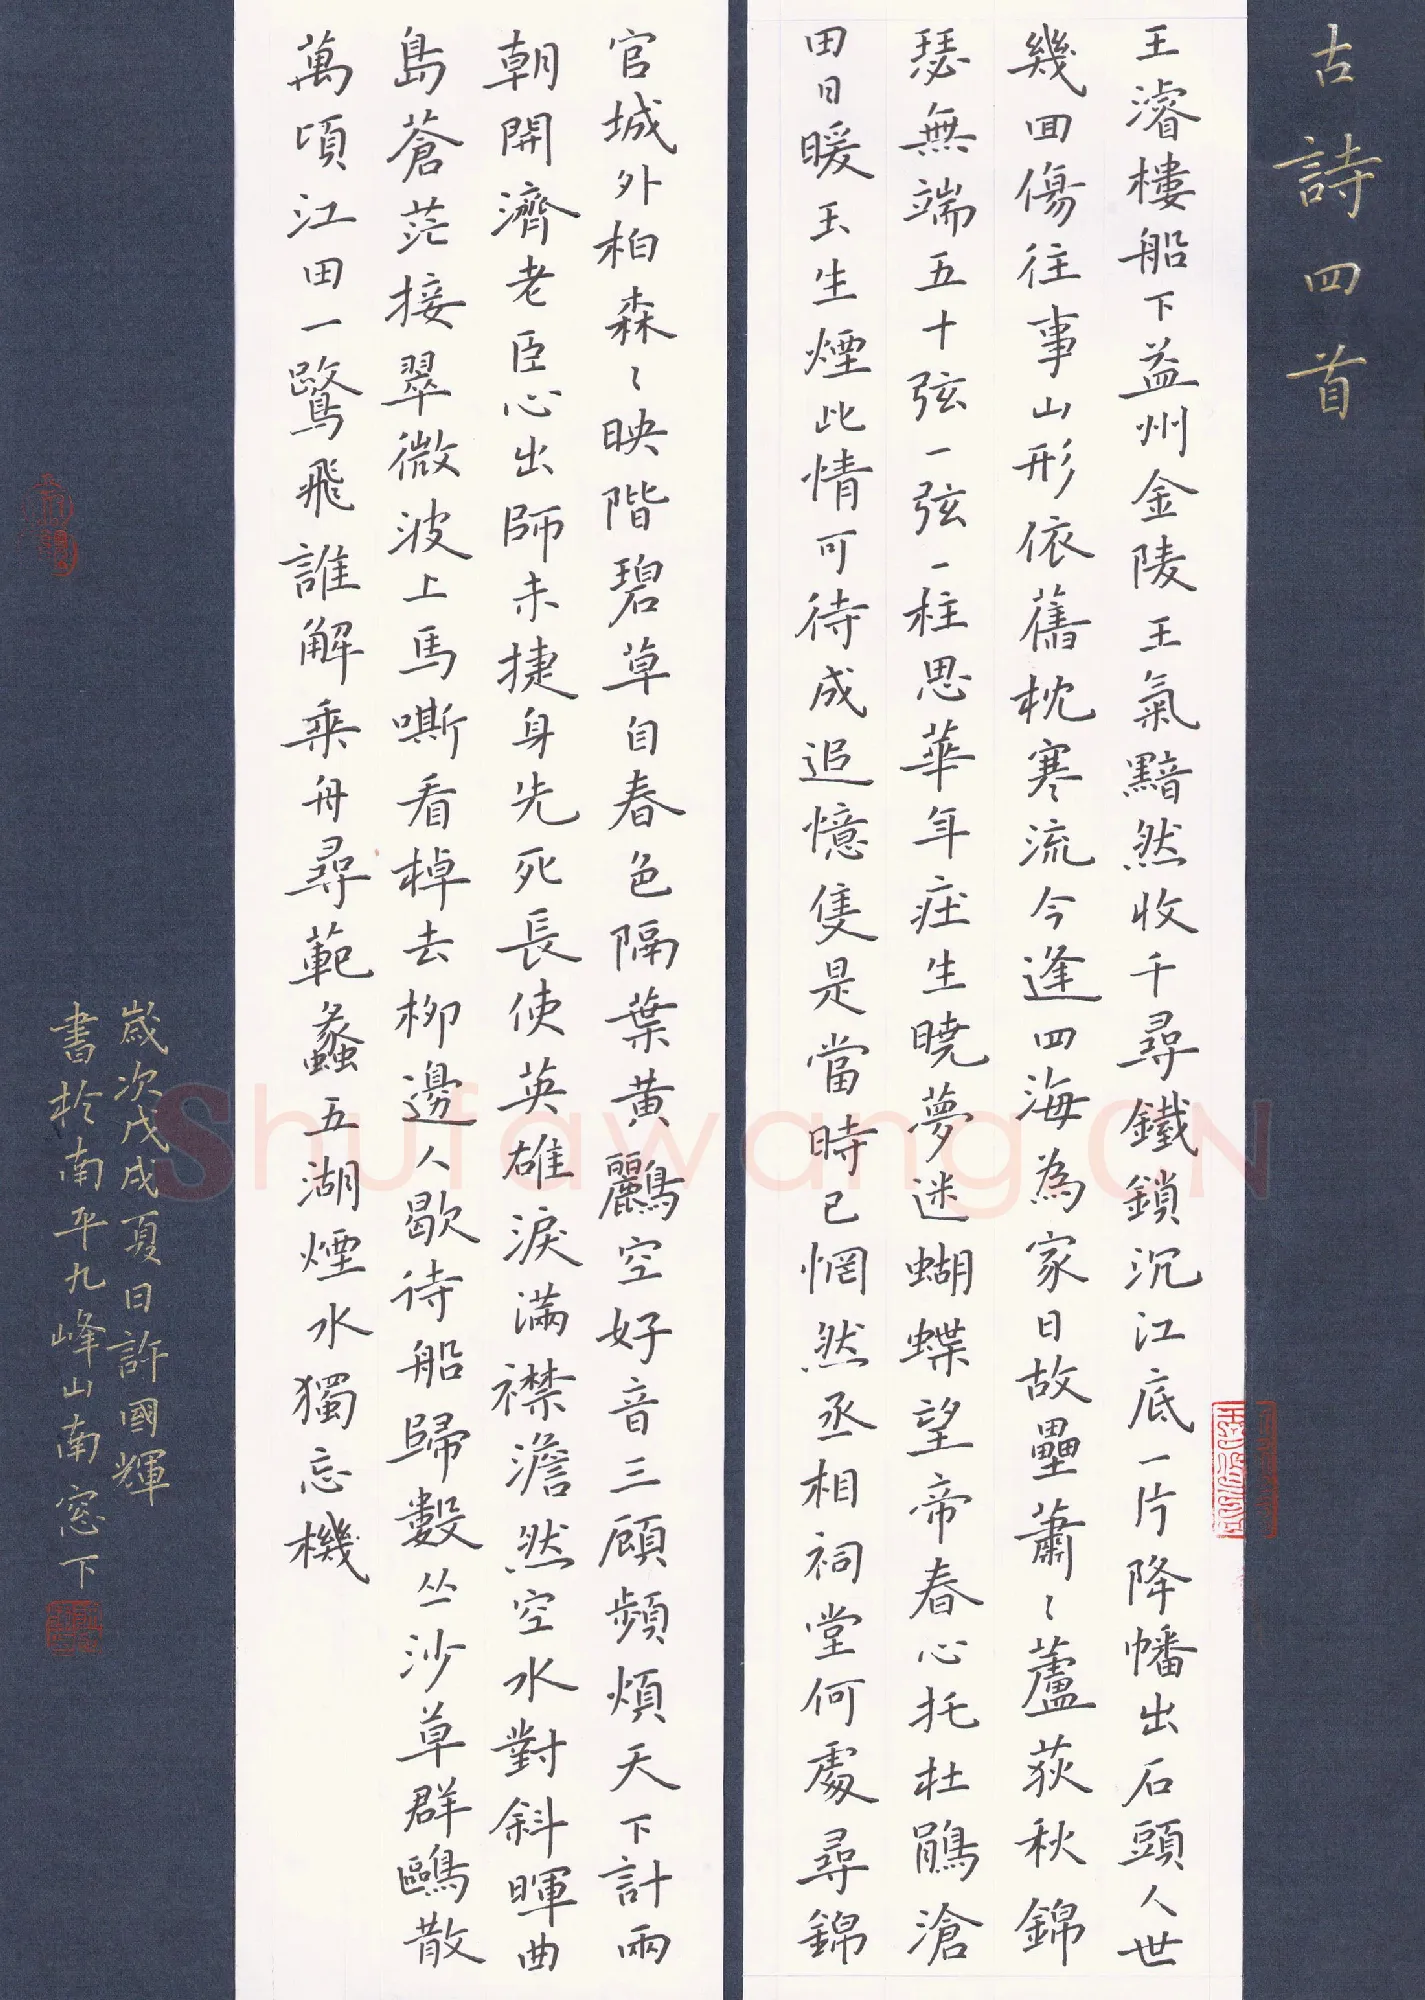 古詩四首
王濬樓船下益州金陵王氣黯然收千尋鐵鎖沉江底一片降幡出石頭人世
幾回傷往事山形依舊枕寒流今逢四海為家日故壘蕭ミ蘆荻秋錦
瑟無端五十弦一弦一柱思華年莊生曉夢迷蝴蝶望帝春心托杜鵑滄
田日暖玉生煙此情可待成追憶隻是當時已惘然丞相祠堂何處尋錦
官城外柏森ミ映階碧草自春色隔葉黃鸝空好音三顧頻煩天下計兩
朝開濟老臣心出師未捷身先死長使英雄淚滿襟澹然空水對斜暉曲
島蒼茫接翠微波上馬嘶看棹去柳邊人歇待船歸數丛沙草群鷗散
萬頃江田一鷺飛誰解乘舟尋範蠡五湖煙水獨忘機
歲次戊戌夏日許國輝
書於南平九峰山南窓下
Shufawang.CN